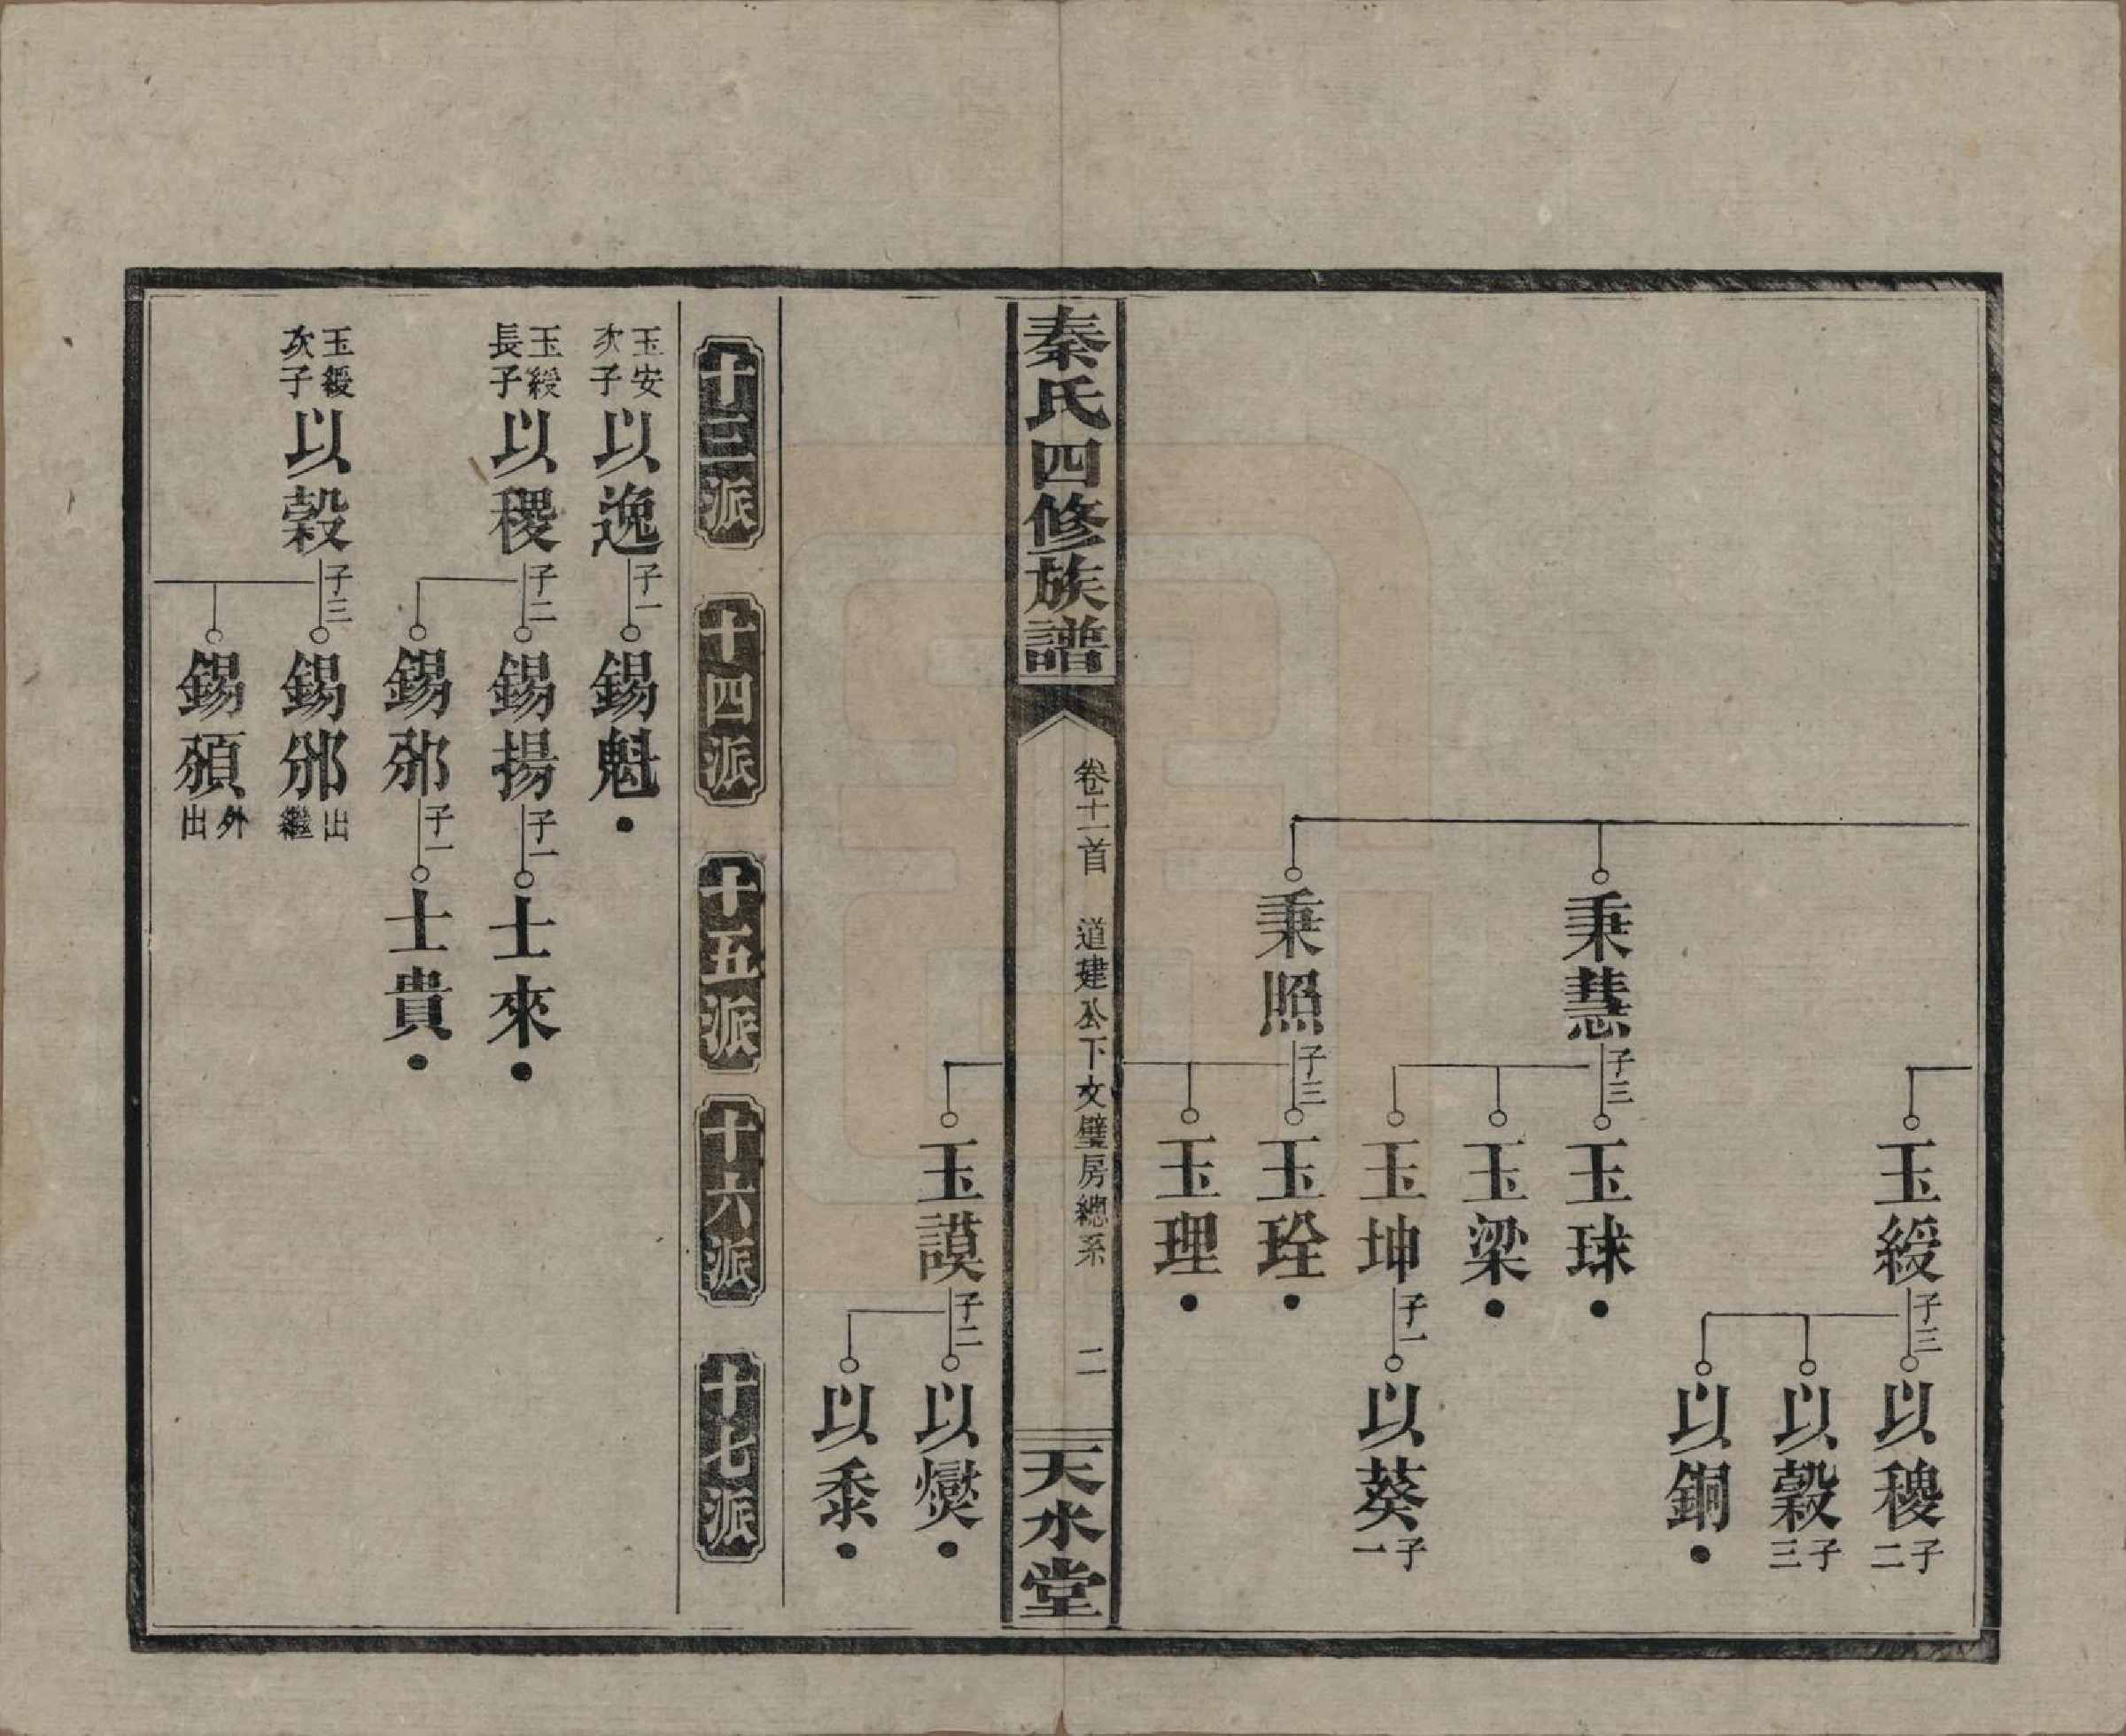 玉綬子三
以稷子二
以穀子三
以銅
秉慧子三
玉球
玉梁
玉坤子一
以葵子一
秉照子三
玉銓
玉理
秦氏四修族譜
卷十一首 道建公下文璧房總系 二
天水堂
玉謨子二
以爕
以黍
十三派
十四派
十五派
十六派
十七派
玉安次子以逸子一
錫魁
玉綬長子以稷子二
錫揚子一
士來
錫邠子一
士貴
玉綬次子以穀子三
錫邠出繼
錫 外出